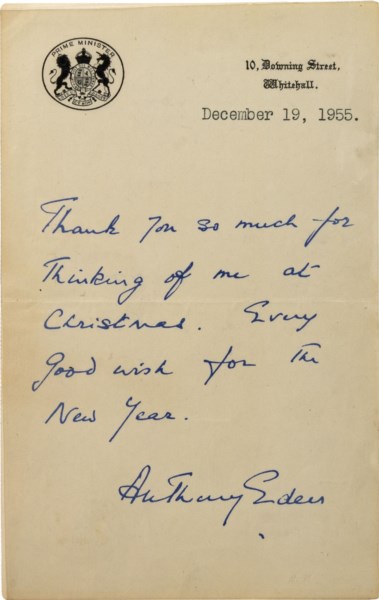 PRIME MINISTER
10, Downing Street,
Whitehall.
December 19, 1955.
Thank you so much for
thinking of me at
Christmas. Every
good wish for the
New Year.
Anthony Eden